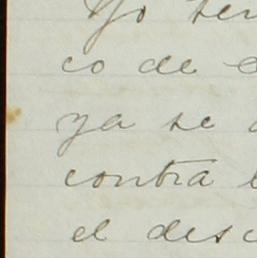 Yo ten
co de e
ya se
contra
el desc